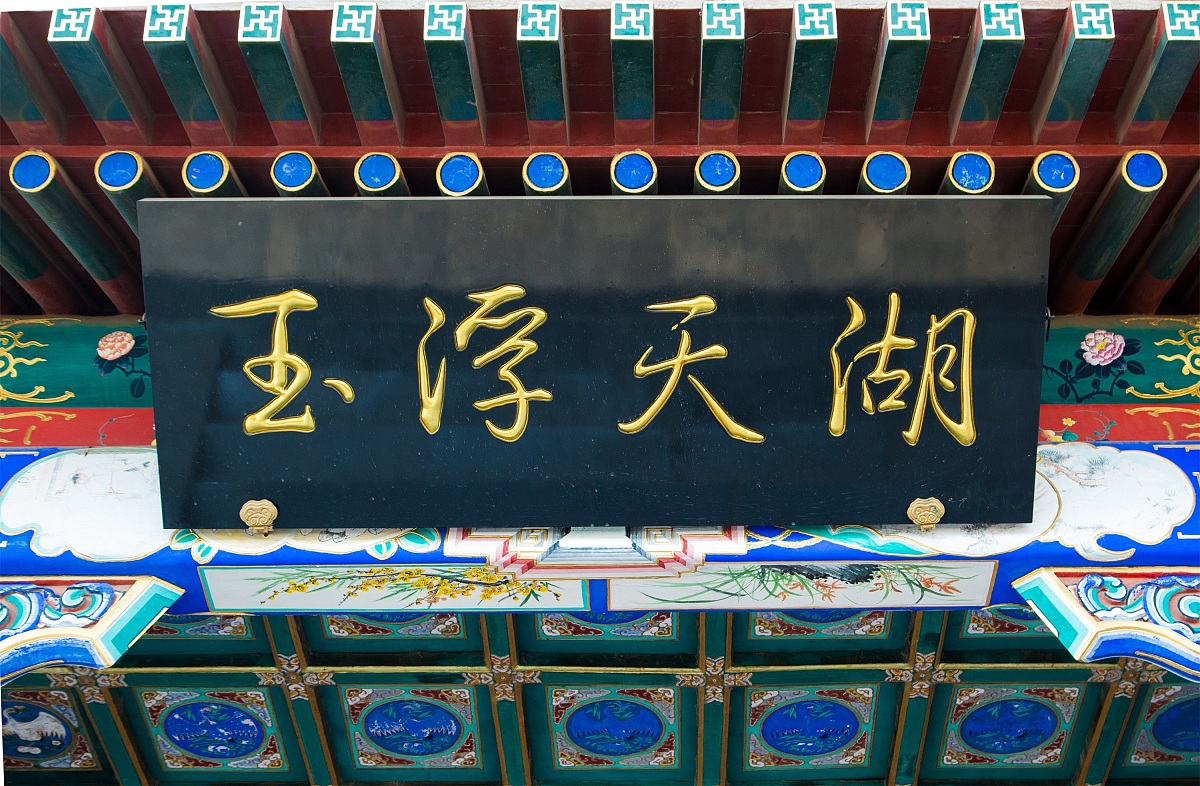 湖天浮玉